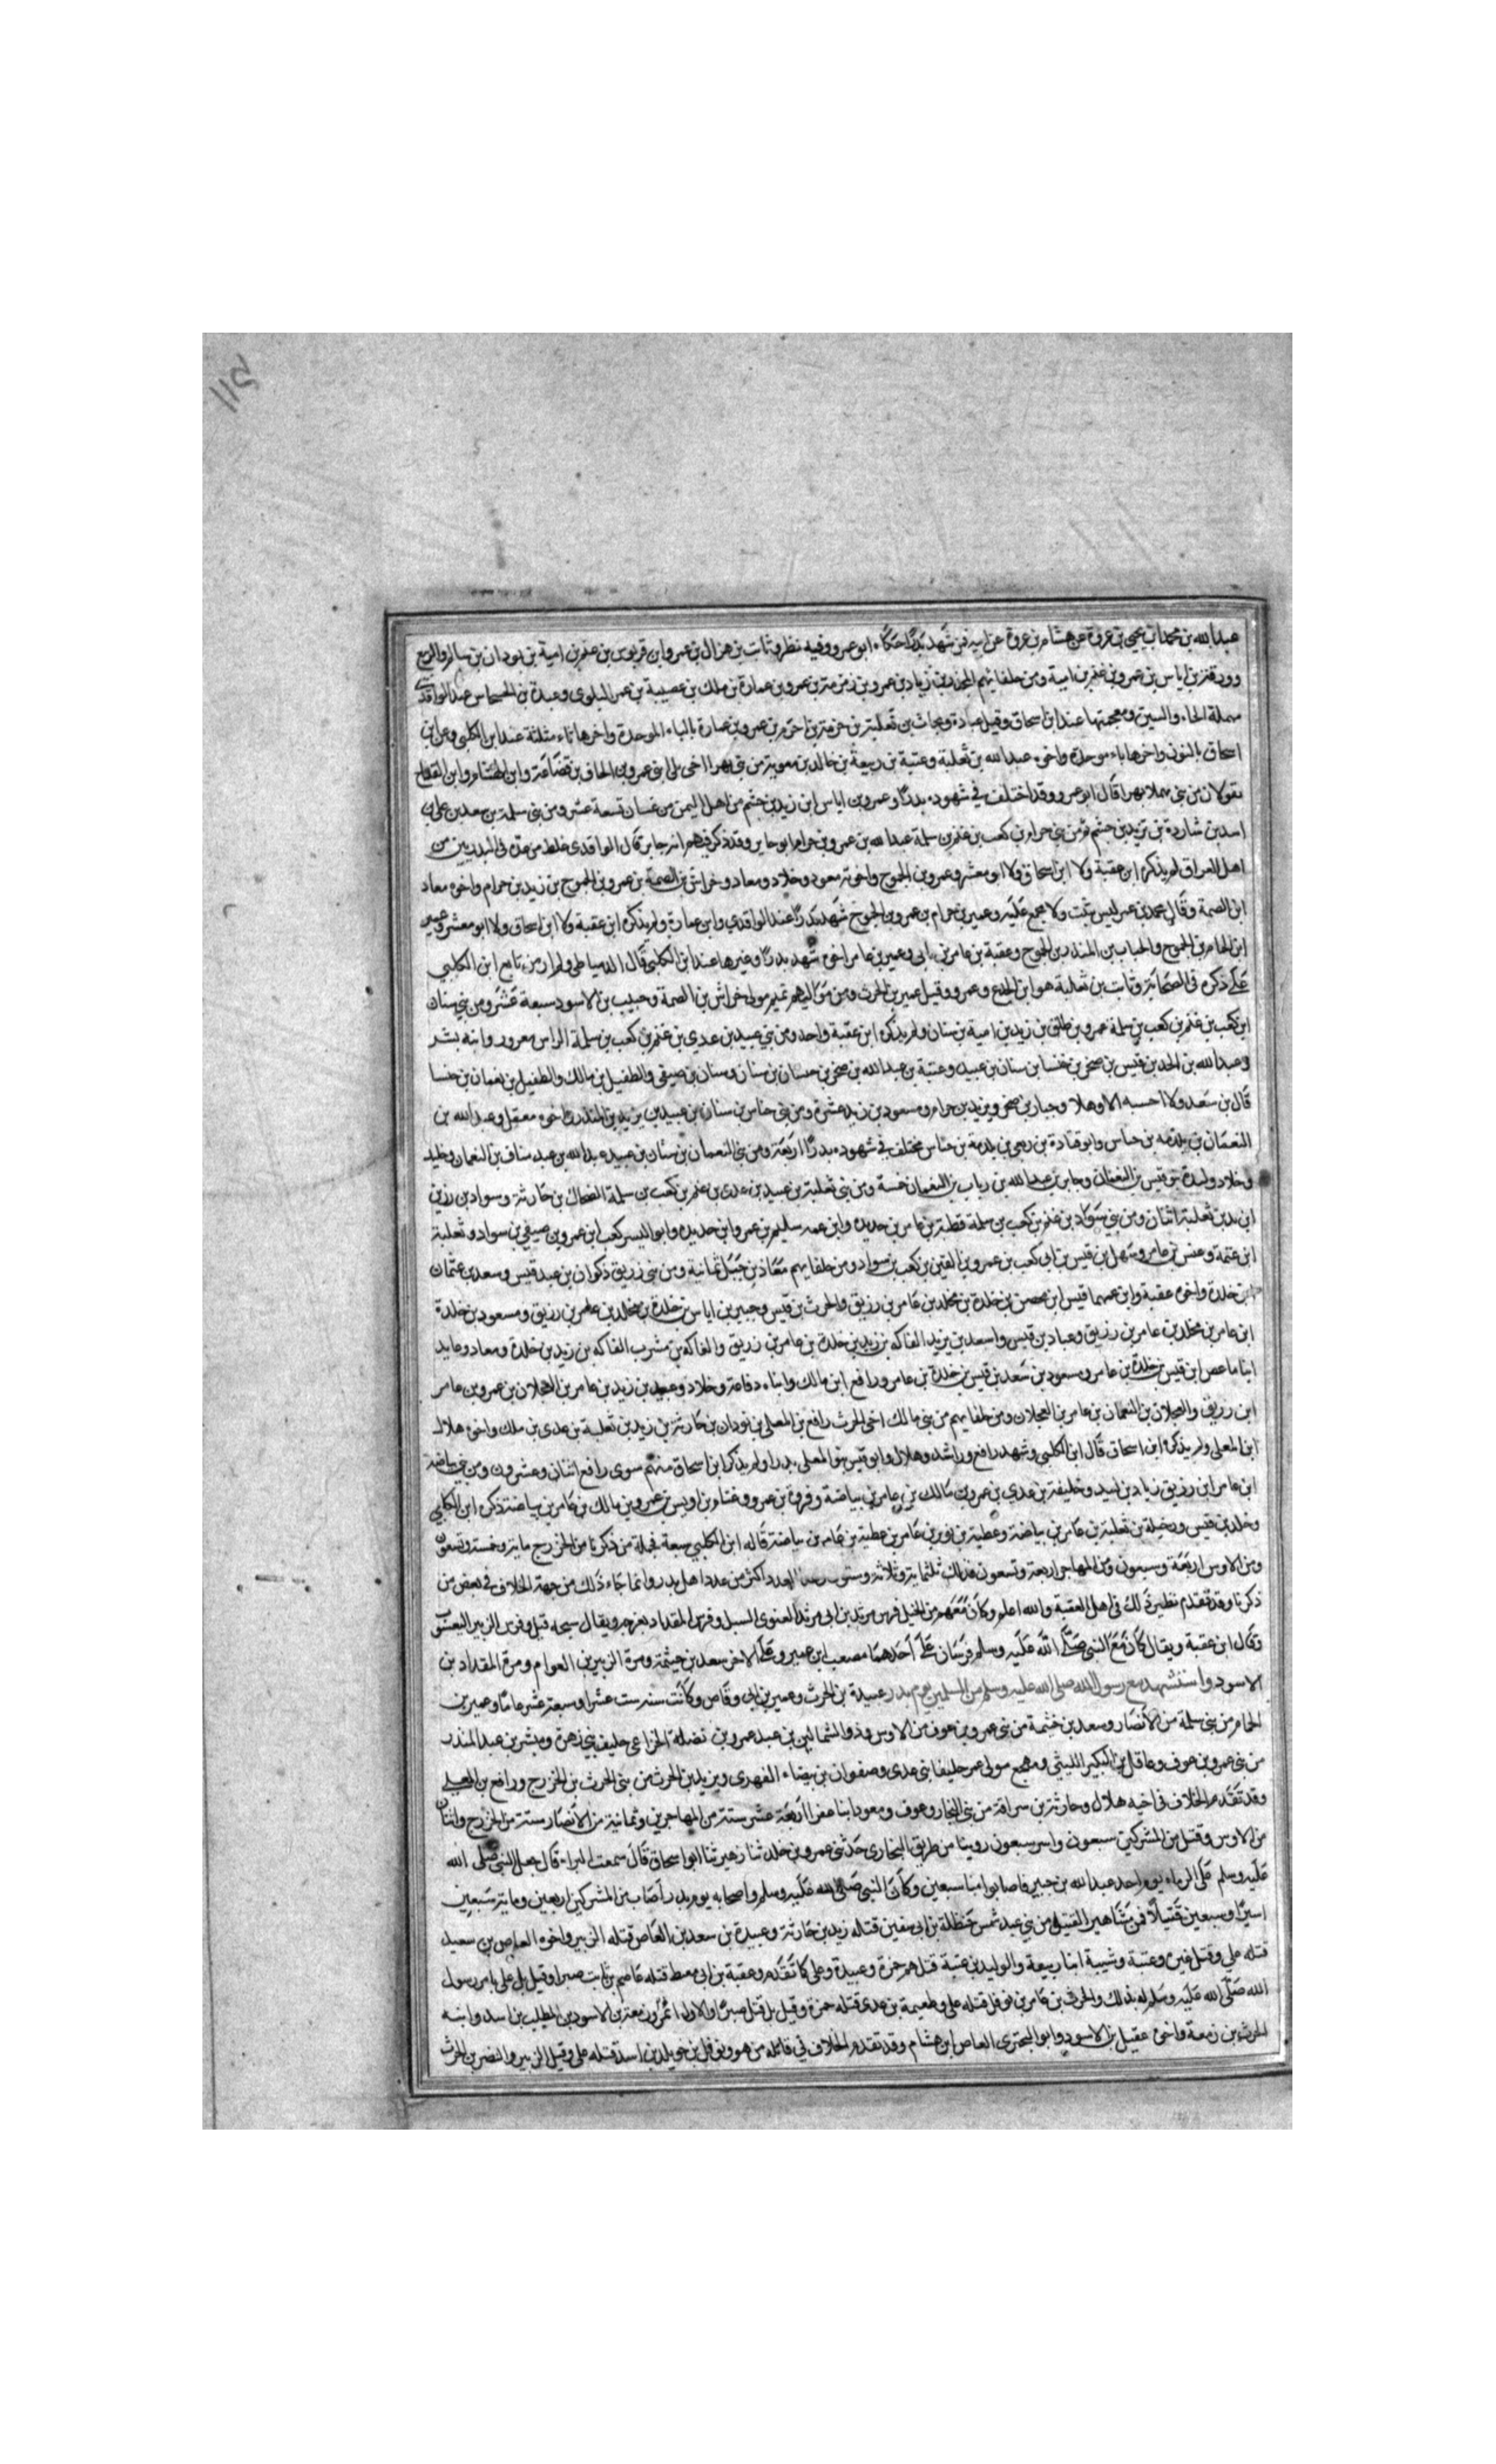 عبدالله بن محمد بن يحيى بن عروة عن هشام بن عروة عن ابيه فمن شهد بدرًا حكاه ابو عمرو وفيه نظر وثابت بن هزال بن عمرو ابن قربوس بن غنم بن امية بن لوذان بن سالم والربيع
وورقة بن اياس بن عمرو بن غنم بن امية ومن حلفائهم المجذر بن زياد بن عمرو بن زمزمة بن عمرو بن عمارة بن ملك بن عصيبة بن عمر البلوى وعبدة بن الحسحاس عند الواقدى
مهملة الحاء والسين ومعجمتها عند ابن اسحاق وقيل عبادة وبحاث بن ثعلبة بن خزمة بن اخرم بن عمرو بن عمارة بالباء الموحدة واخرها ثاء مثلثة عند ابن الكلبى وعن ابن
اسحاق بالنون واخرها باء موحدة واخوه عبدالله بن ثعلبة وعتبة بن ربيعة بن خالد بن معوية من بنى بهرا اخى بلى ابنى عمرو بن الحاف بن قضاعة وابن هشام وابن القداح
يقولان من بنى بهراء قال ابو عمر ووقد اختلف في شهوده بدرًا وعمرو بن اياس ابن زيد بن جشم من اهل اليمن من غسان تسعة عشر ومن بنى سلمة بن سعد بن على بن
اسد بن شاردة بن تزيد بن جشم ثم من بنى حرام بن كعب بن غنم بن سلمة عبدالله بن عمرو بن حرام ابو جابر وقد ذكر فيهم ابنه جابر قال الواقدى غلط من عده فى البدريين من
اهل العراق لم يذكره ابن عقبة ولا ابن اسحاق ولا ابو معشر وعمرو بن الجموح واخوته معوذ وخلاد ومعاذ وخراش بن الصمة بن عمرو بن الجموح بن زيد بن حرام واخوه معاذ
ابن الصمة وقال محمد بن عمر ليس بثبت ولا مجمع عليه وعمير بن حرام بن عمرو بن الجموح شهد بدرًا عند الواقدي وابن عمارة ولم يذكره ابن عقبة ولا ابن اسحاق ولا ابو معشر وعمير
ابن الحام بن الجموح والحباب بن المنذر بن الجموح وعقبة بن عامر بن نابى وعمير بن عامر اخوه شهد بدرًا وغيرها عند ابن الكلبى قال الدمياطى ولم ار من تابع ابن الكلبي
على ذكره فى الصحابة وثابت بن ثعلبة هو ابن الجذع وعمرو وقيل عمير بن الحرث ومن مواليهم تميم مولى خراش بن الصمة وحبيب بن الاسود سبعة عشر ومن بني سنان
ابن كعب بن غنم بن كعب بن سلمة عمرو بن طلق بن زيد بن امية بن سنان ولم يذكره ابن عقبة واحد ومن بني عبيد بن عدي بن غنم بن كعب بن سلمة البراء بن معرور وابنه بشر
وعبدالله بن الجد بن قيس بن صخر بن خنسا بن سنان بن عبيد وعتبة بن عبدالله بن صخر بن حسان بن سنان وسنان بن صيفى والطفيل بن مالك والطفيل بن نعمان بن خنسا
قال بن سعد ولا احسبه الا وهلا وجبار بن صخر ويزيد بن حرام ومسعود بن زيد عشرة ومن بنى خناس بن سنان بن عبيد بن يزيد بن المنذر واخوه معقل وعبدالله بن
النعمان بن بلدمة بن خناس وابو قتادة بن ربعى بن بلدمة بن خناس مختلف في شهوده بدرًا اربعة ومن بنى النعمان بن سنان بن عبيد عبدالله بن عبد مناف بن النعمان وخليد
وخلاد ولبدة بنو قيس بن النعمان وجابر بن عبدالله بن رياب بن النعمان خمسة ومن بنى ثعلبة بن عبيد بن عدى بن غنم بن كعب بن سلمة الضحاك بن حارثة وسواد بن رزين
ابن زيد بن ثعلبة اثنان ومن بنى سواد بن غنم بن كعب بن سلمة قطبة بن عامر بن حديدة وابن عمه سليم بن عمرو ابن حديدة وابو اليسر كعب ابن عمرو بن صيفي بن سواد وثعلبة
ابن عنمة وعبس بن عامر وسهل بن قيس بن ابى كعب بن عمرو بن القين بن كعب بن سواد ومن حلفايهم معاذ بن جبل ثمانية ومن بنى زريق ذكوان بن عبد قيس وسعد بن عثمان
بن خلدة واخوه عقبة وابن عمهما قيس ابن محصن بن خلدة بن مخلد بن عامر بن زريق والحرث بن قيس وجبير بن اياس بن خلدة بن مخلد بن عامر بن زريق ومسعود بن خلدة
ابن عامر بن مخلد بن عامر بن زريق وعباد بن قيس واسعد بن يزيد الفاكه بن زيد بن خلدة بن عامر بن زريق والفاكه بن بشر بن الفاكه بن زيد بن خلدة ومعاذ وعايذ
ابنا ماعص ابن قيس بن خلدة بن عامر ومسعود بن سعد بن قيس بن خلدة بن عامر ورافع ابن مالك وابناه رفاعة وخلاد وعبيد بن زيد بن عامر بن العجلان بن عمرو بن عامر
ابن زريق والعجلان بن النعمان بن عامر بن العجلان ومن حلفايهم من بنى مالك اخى الحرث رافع بن المعلى بن لوذان بن حارثة بن زيد بن ثعلبة بن عدى بن ملك واخوه هلال
ابن المعلى ولم يذكره ابن اسحاق قال ابن الكلبى وشهد رافع وراشد وهلال وابو قيس بنو المعلى بدرا ولم يذكر ابن اسحاق منهم سوى رافع اثنان وعشرون ومن بني بياضة
ابن عامر ابن زريق زياد بن لبيد وخليفة بن عدي بن عمرو بن مالك بن عامر بن بياضة وفروة بن عمرو وغنام بن اوس بن عمرو بن مالك بن عامر بن بياضة ذكره ابن الكلبي
وخلد بن قيس ورخيلة بن ثعلبة بن عامر بن بياضة وعطية بن نويرة بن عامر بن عطية بن عامر بن بياضة قاله ابن الكلبى سبعة فجملة من ذكرنا من الخزرج ماية وخمسة وتسعون
ومن الاوس اربعة وسبعون ومن المهاجر اربعة وتسعون فذلك ثلثماية وثلاثة وستون العدد اكثر من عدد اهل بدر وانما جاء ذلك من جهة الخلاف فى بعض من
ذكرنا وقد تقدم نظير ذلك فى اهل العقبة والله اعلم وكان معهم من الخيل فرس مرثد بن ابى مرثد الغنوى السبل وفرس المقداد بعزجه ويقال سبحه قيل وفرس الزبير اليعسوب
وقال ابن عقبة ويقال كان مع النبى صلى الله عليه وسلم فرسان على احدهما مصعب ابن عمير وعلى الاخر سعد بن خيثمة ومرة الزبير بن العوام ومرة المقداد بن
الاسود واستشهد مع رسول الله صلى الله عليه وسلم من المسلمين يوم بدر عبيدة بن الحرث وعمير بن ابى وقاص وكانت سنه ست عشر او سبعة عشر عامًا وعمير بن
الحام من بنى سلمة من الانصار وسعد بن خثمة من بنى عمرو بن عوف من الاوس وذو الشمالين بن عبد عمرو بن نضلة الخزاعى حليف بنى زهرة ومبشر بن عبد المنذر
من بنى عمرو بن عوف وعاقل بن البكير الليثي ومهجع مولى عمر حليفا بنى عدى وصفوان بن بيضاء الفهرى ويزيد بن الحرث من بنى الحرث بن الخزرج ورافع بن المعلى
وقد تقدم الخلاف فى اخيه هلال وحارثة بن سراقة من بنى النجار وعوف ومعوذ ابنا عفرا اربعة عشر ستة من المهاجرين وثمانية من الانصار ستة من الخزرج واثنان
من الاوس وقتل من المشركين سبعون واسر سبعون روينا من طريق البخارى حدثنى عمرو بن خلد ثنا زهير ثنا ابو اسحاق قال سمعت البراء قال جعل النبى صلى الله
عليه وسلم على الرماه يوم احد عبدالله بن جبير فاصابوا منا سبعين وكان النبى صلى الله عليه وسلم واصحابه يوم بدر اصاب من المشركين اربعين وماية سبعين
اسيرًا وسبعين قتيلاً فمن مشاهير القتيل من بني عبد شمس حنظلة بن ابى سفين قتله زيد بن حارثة وعبيدة بن سعد بن العاص قتله الزبير واخوه العاص بن سعيد
قتله علي وقتل غيره وعتبة وشيبة ابنا ربيعة والوليد بن عتبة قتلهم حمزة وعبيدة وعلى كما تقدم وعقبة بن ابى معيط قتله عاصم بن ثابت صبرا وقيل بل على بامر رسول
الله صلى الله عليه وسلم له بذلك والحرث بن عامر بن نوفل قتله علي وطعيمة بن عدى قتله حمزة وقيل بل قتل صبرًا والاول اشهر وزمعة بن الاسود بن المطلب بن اسد وابنه
الحرث بن زمعة واخوه عقيل بن الاسود وابو البحترى العاص ابن هشام وقد تقدم الخلاف في قاتله من هو ونوفل بن خويلد بن اسد قتله على وقيل الزبير والنضر بن الحرث